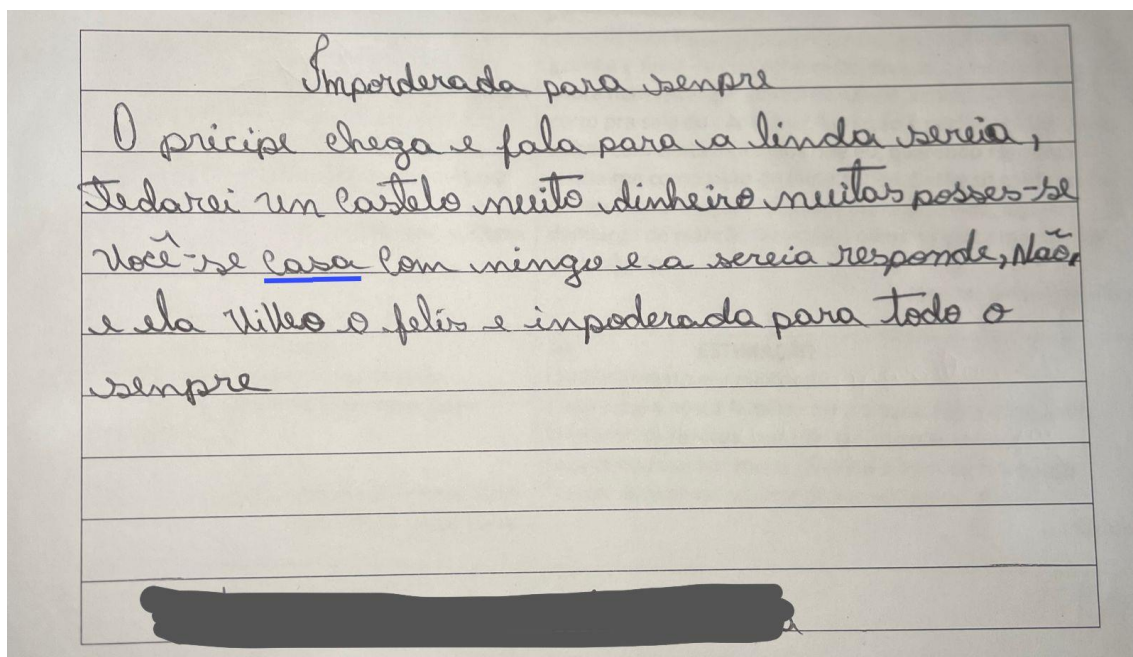 Imporderada para senpre
O pricipe chega e fala para a linda sereia,
tedarei un castelo muito dinheiro muitas posses-se
você-se casa com mingo e a sereia responde, Não,
e ela o felis e inpoderada para todo o
senpre